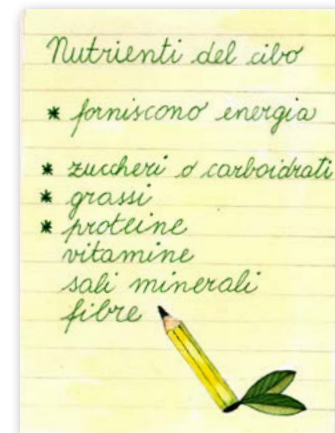 Nutrienti del cibo
* forniscono energia
* zuccheri o carboidrati
* grassi
* proteine
vitamine
sali minerali
fibre